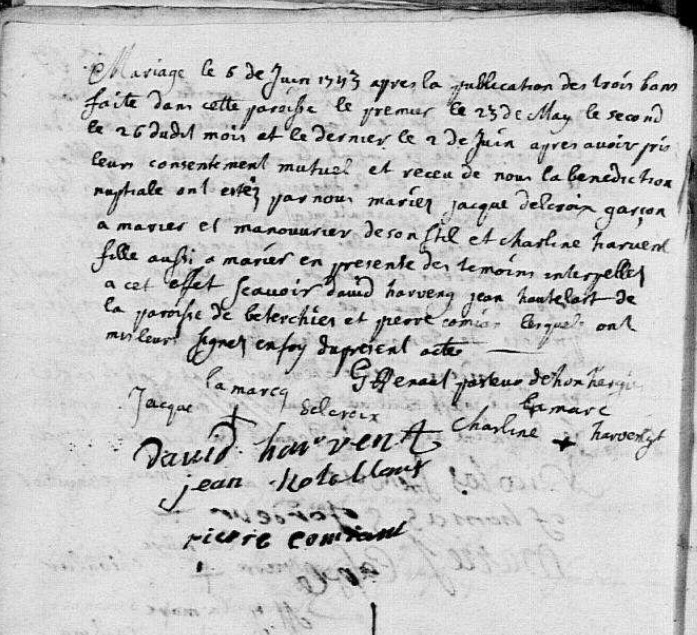 Mariage le 6 de Juin 1743 apres la publication des trois bans
faite dans cette paroisse le premier le 23 de May le second
le 26 dudit mois et le dernier le 2 de Juin apres avoir pris
leurs consentement mutuel et receu de nous la benediction
nuptiale ont estéz par nous mariez jacque delcroix garçon
a marier et manouvrier de son stil et charline harvent
fille aussi a marier en presente des temoins interpellez
a cet effet scavoir david harveng jean hautelart de
la paroisse de beterchies et pierre comian lesquels ont
mis leurs signez en foy du present acte
pasteur de hon hergies
la marcq
la marc
Jacque + delcroix
Charline + harvengt
David harvent
jean
pierre comiant